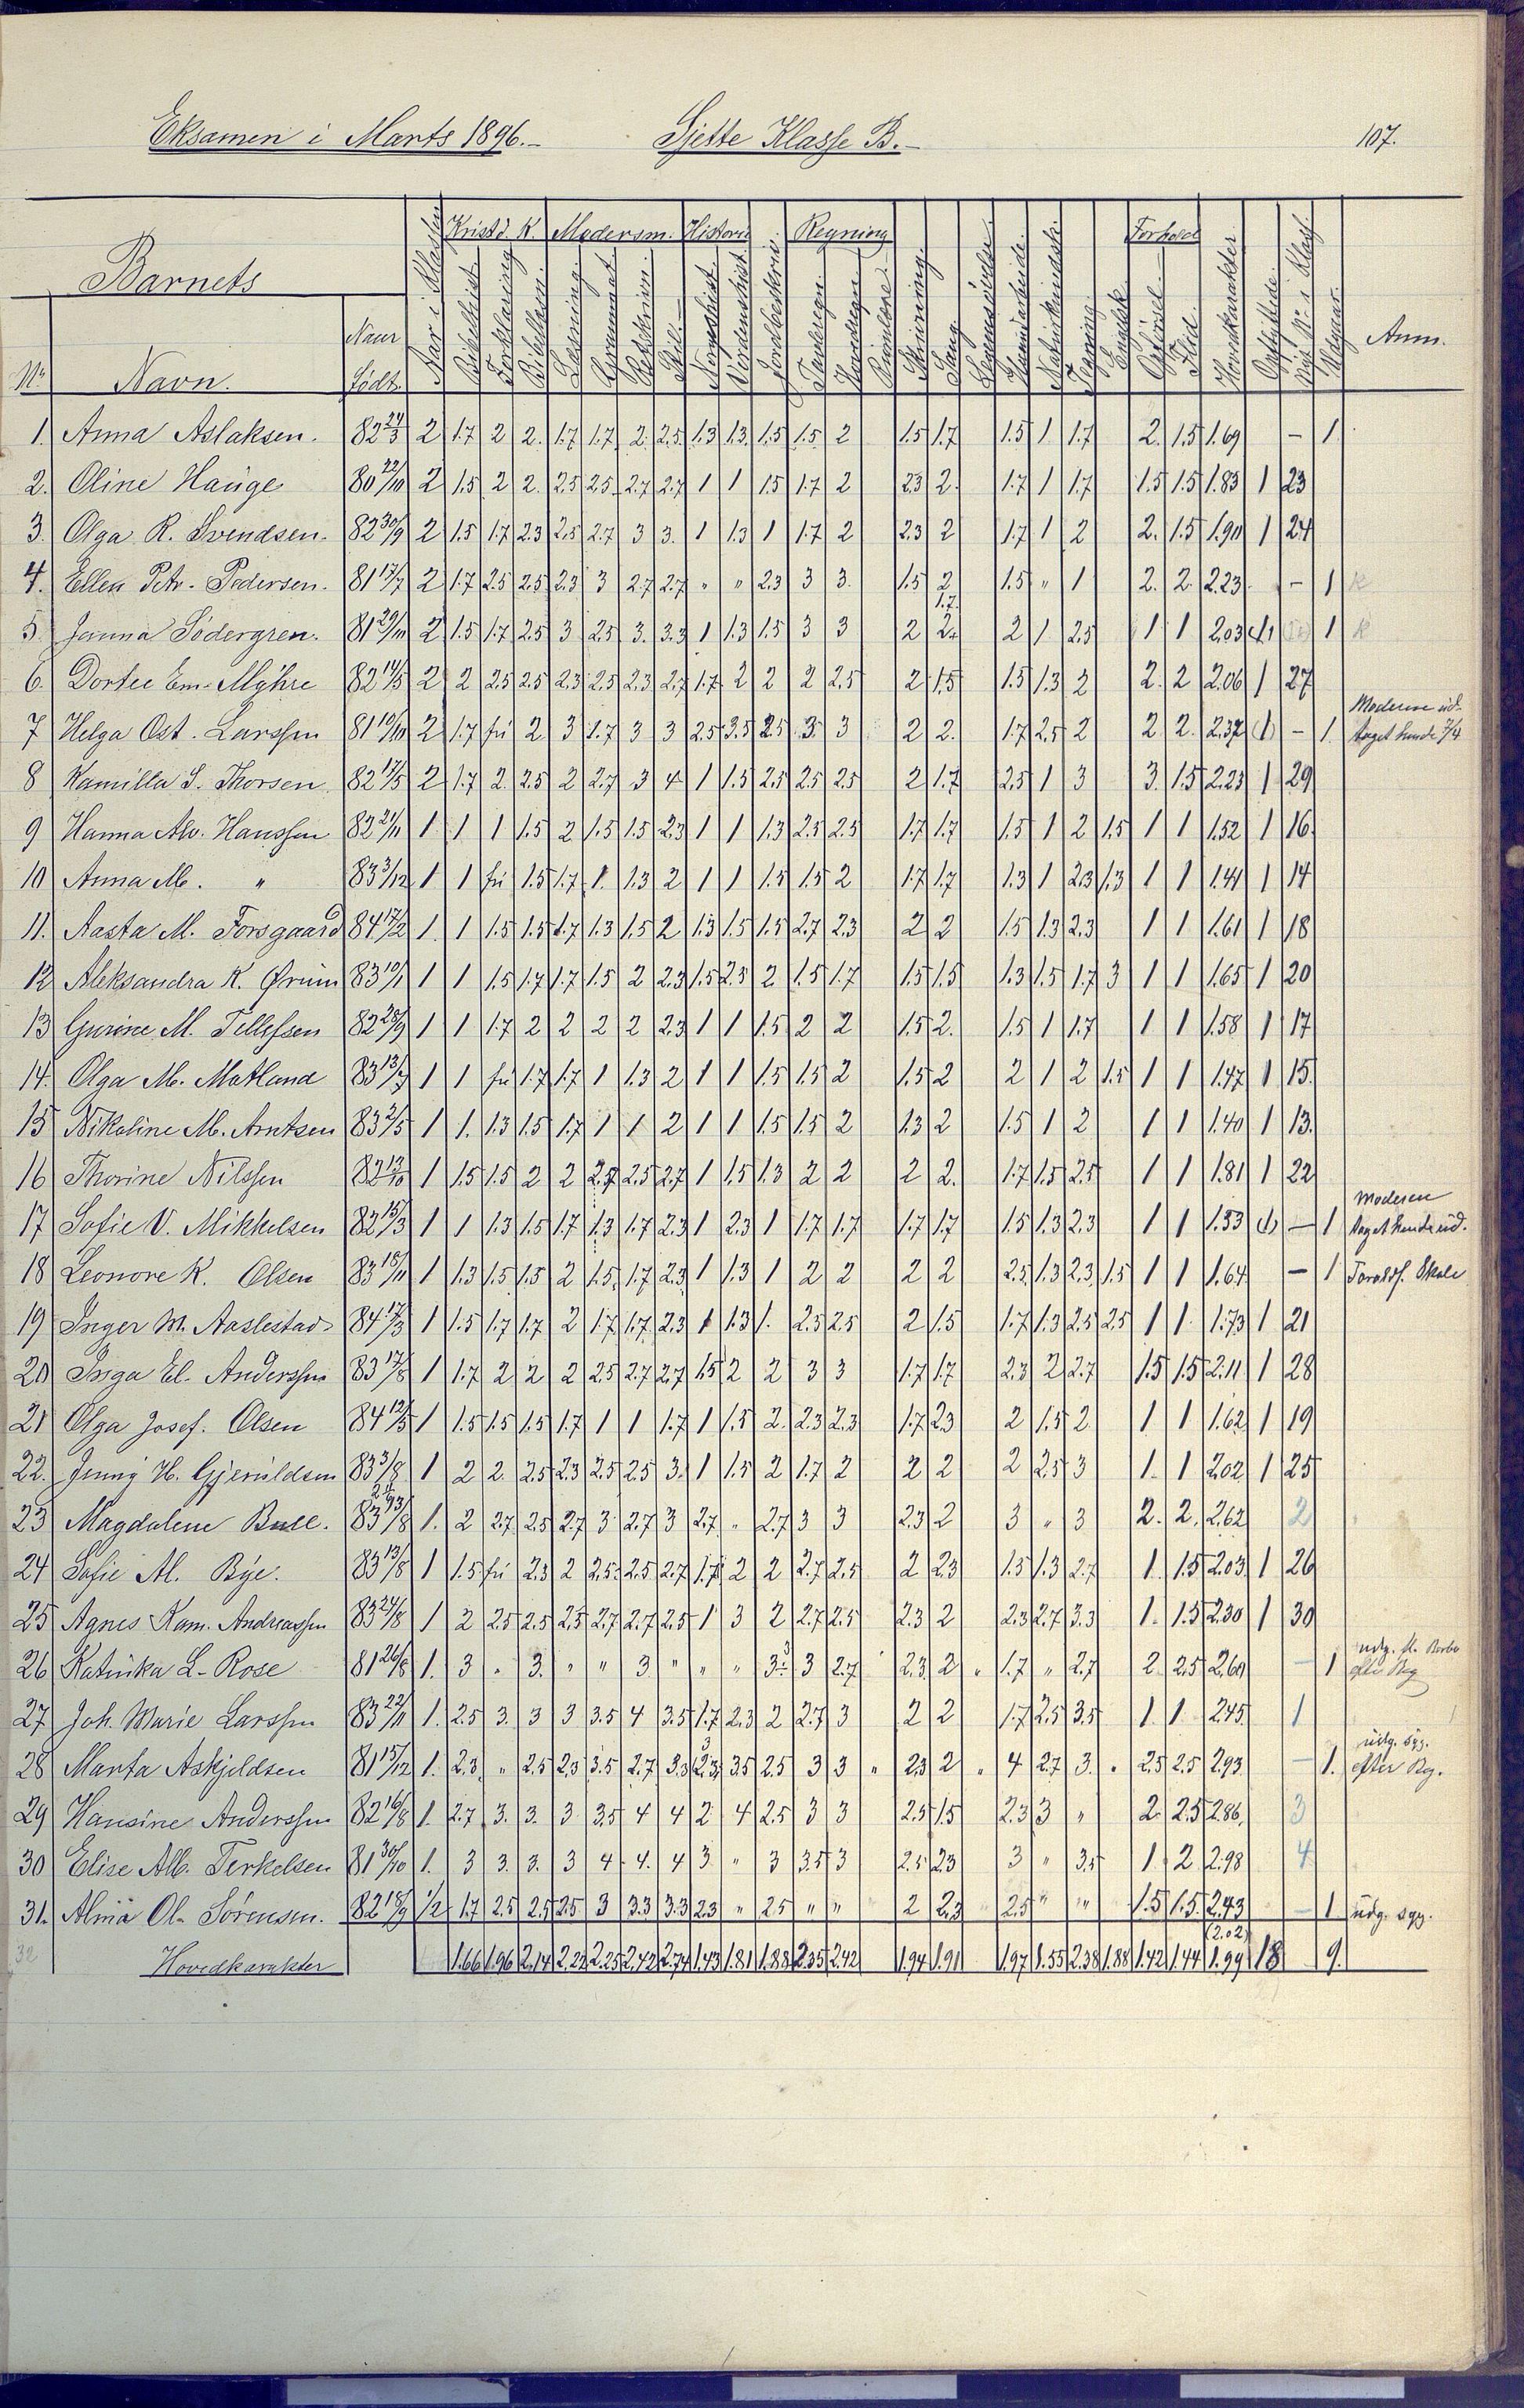 Eksamen i Marts 1896.– Sjette Klasse B.– 107.
Barnets
Kristd. K. Modersm. Historie Regning Forhold
No Navn. Naar født. Aar i Klassen Bibelhist. Forklaring Bibellæsn. Læsning Grammat. Retskrivn. Stil. Norgeshist. Verdenshist. Jordbeskriv. Tavleregn. Hovedregn. Skrivning. Sang. Legemsøvelse. Haandarbeide. Naturkundsk. Tegning. Engelsk Opførsel Flid. Hovedkarakter Opflyttede Nyt No i Klass. Udgaar. Anm.
1. Anna Aslaksen. 82 24/3 2 1.7 2 2. 1.7 1.7 2. 2.5 1.3 1.3. 1.5 1.5 2 1.5 1.7 1.5 1 1.7 2. 1.5 1.69 – 1.
2. Oline Hauge 80 22/10 2 1.5 2 2. 2.5 2.5 2.7 2.7 1 1 1.5 1.7 2 2.3 2. 1.7 1 1.7 1.5 1.5 1.83 1 23
3. Olga R. Svendsen. 82 30/9 2 1.5 1.7 2.3 2.5 2.7 3 3. 1 1.3 1 1.7 2 2.3 2 1.7 1 2 2. 1.5 1.90 1 24
4. Ellen Petr. Pedersen. 81 17/7 2 1.7 2.5 2.5 2.3 3 2.7 2.7 " " 2.3 3 3. 1.5 2 1.5 " 1 2. 2 2.23 – 1 k
5. Janna Södergren. 81 29/10 2 1.5 1.7 2.5 3 2.5 3. 3.3 1 1.3 1.5 3 3 2 1.7 2. 2 1 2.5 1 1 2.03 (1) 1 k
6. Dortee Em. Myhre 82 14/5 2 2 2.5 2.5 2.3 2.5 2.3 2.7 1.7 2 2 2 2.5 2 1.5 1.5 1.3 2 2. 2 2.06 1 27
7 Helga Ost. Larssen 81 10/10 2 1.7 fri 2 3 1.7 3 3 2.5 3.5 2.5 3 3 2 2. 1.7 2.5 2 2 2. 2.37 (1) – 1. Moderen ud-
taget hende 7/4
8 Kamilla S. Thorsen 82 17/5 2 1.7 2. 2.5 2 2.7 3 4 1 1.5 2.5 2.5 2.5 2 1.7 2.5 1 3 3. 1.5 2.23 1 29
9 Hanna Alv. Hanssen 82 21/11 1. 1 1 1.5 2 1.5 1.5 2.3 1 1 1.3 2.5 2.5 1.7 1.7 1.5 1 2 1.5 1 1 1.52 1 16.
10 Anna M. " 83 3/12 1 1 fri 1.5 1.7 1. 1.3 2 1 1 1.5 1.5 2 1.7 1.7 1.3 1 2.3 1.3 1 1 1.41 1 14
11. Aasta M. Forsgaard 84 17/2 1. 1 1.5 1.5 1.7 1.3 1.5 2 1.3 1.5 1.5 2.7 2.3 2 2 1.5 1.3 2.3 1 1 1.61 1 18
12 Aleksandra K. Ørum 83 10/1 1 1 1.5 1.7 1.7 1.5 2 2.3 1.5 2.3 2 1.5 1.7 1.5 1.5 1.3 1.5 1.7 3 1 1 1.65 1 20
13 Gurine M. Tellefsen 82 28/9 1 1 1.7 2 2 2 2 2.3 1 1 1.5 2 2 1.5 2. 1.5 1 1.7 1 1 1.58 1 17
14. Olga M. Matland 83 13/7 1 1 fri 1.7 1.7 1 1.3 2 1 1 1.5 1.5 2 1.5 2 2 1 2 1.5 1 1 1.47 1 15.
15 Nikoline M. Arntsen 83 2/5 1 1. 1.3 1.5 1.7 1 1 2 1 1 1.5 1.5 2 1.3 2 1.5 1 2 1 1 1.40 1 13.
16 Thorine Nilssen 82 13/10 1 1.5 1.5 2 2 2.7 2.5 2.7 1 1.5 1.3 2 2 2 2. 1.7 1.5 2.5 1 1 1.81 1 22
17 Sofie V. Mikkelsen 82 15/3 1 1 1.3 1.5 1.7 1.3 1.7 2.3 1 2.3 1 1.7 1.7 1.7 1.7 1.5 1.3 2.3 1 1 1.53 (1) – 1 Moderen
taget hende ud.
18 Leonore K. Olsen 83 18/11 1 1.3 1.5 1.5 2 1.5 1.7 2.3 1 1.3 1 2 2 2 2 2.3 1.3 2.3 1.5 1 1 1.64 – 1 Skole
19 Inger M. Aaslestad 84 17/3 1 1.5 1.7 1.7 2 1.7 1.7 2.3 1 1.3 1. 2.5 2.5 2 1.5 1.7 1.3 2.5 2.5 1 1 1.73 1 21
20 Inga El. Anderssen 83 17/8 1 1.7 2 2 2 2.5 2.7 2.7 1.5 2 2 3 3 1.7 1.7 2.3 2 2.7 1.5 1.5 2.11 1 28
21 Olga Josef. Olsen 84 12/5 1 1.5 1.5 1.5 1.7 1 1 1.7 1 1.5 2. 2.3 2.3 1.7 2.3 2 1.5 2 1 1 1.62 1 19
22. Jenny H. Gjeruldsen 83 3/8 1 2 2. 2.5 2.3 2.5 2.5 3. 1 1.5 2 1.7 2 2 2 2 2.5 3 1. 1 2.02 1 25
23 Magdalene Bull. 83 1. 2 2.7 2.5 2.7 3 2.7 3 2.7 " 2.7 3 3 2.3 2 3 " 3 2. 2. 2.62 2
24 Sofie Al. Bye. 83 13/8 1 1.5 fri 2.3 2 2.5 2.5 2.7 1.7 2 2 2.7 2.5 2 2.3 1.5 1.3 2.7 1. 1.5 2.03 1 26
25 Agnes Kam. Andreassen 83 24/8 1 2 2.5 2.5 2.5 2.7 2.7 2.5 1 3 2 2.7 2.5 2.3 2 2.3 2.7 3.3 1. 1.5 2.30 1 30
26 Katinka L. Rose 81 26/8 1. 3 " 3. " " 3 " " " 3 3 2.7 2.3 2 " 1.7 " 2.7 2 2.5 2.60 – 1 udg.
27 Joh. Marie Larssen 83 22/11 1. 2.5 3. 3 3 3.5 4 3.5 1.7 2.3 2 2.7 3 2 2 1.7 2.5 3.5 1. 1 2.45 1
28 Marta Askjeldsen 81 15/12 1. 2.3 " 2.5 2.3 3.5 2.7 3.3 2.3 3.5 2.5 3 3 " 2.3 2 " 4 2.7 3. " 2.5 2.5 2.93 – 1. udg. syg.
efter Beg.
29 Hansine Anderssen 82 16/8 1. 2.7 3. 3. 3 3.5 4 4 2 4 2.5 3 3 2.5 1.5 2.3 3 " 2 2.5 2.86 3
30 Elise Alb. Terkelsen 81 30/10 1. 3 3. 3. 3 4 4. 4 3 " 3 3.5 3 2.5 2.3 3 " 3.5 1 2 2.98 4
31. Alma Ol. Sörensen. 82 18/9 1/2 1.7 2.5 2.5 2.5 3 3.3 3.3 2.3 " 2.5 " " 2 2.3 2.5 " " 1.5 1.5 2.43 – 1 udg. syg.
(2.02)
32 Hovedkarakter 1.66 1.96 2.14 2.22 2.25 2.42 2.74 1.43 1.81 1.88 2.35 2.42 1.94 1.91 1.97 1.55 2.38 1.88 1.42 1.44 1.99 18 9.